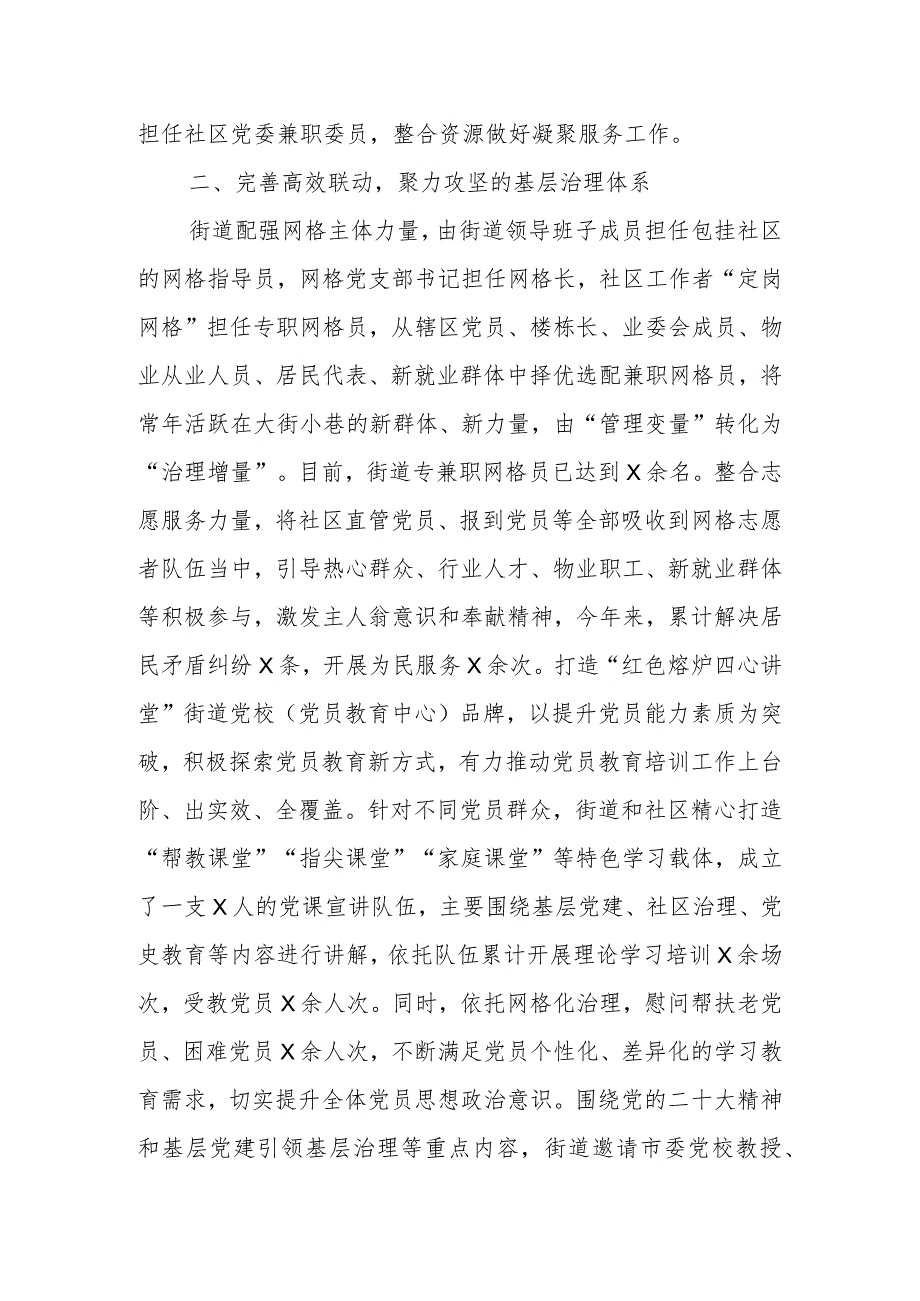 担任社区党委兼职委员，整合资源做好凝聚服务工作。
二、完善高效联动，聚力攻坚的基层治理体系
街道配强网格主体力量，由街道领导班子成员担任包挂社区
的网格指导员，网格党支部书记担任网格长，社区工作者“定岗
网格”担任专职网格员，从辖区党员、楼栋长、业委会成员、物
业从业人员、居民代表、新就业群体中择优选配兼职网格员，将
常年活跃在大街小巷的新群体、新力量，由“管理变量”转化为
“治理增量”。目前，街道专兼职网格员已达到X余名。整合志
愿服务力量，将社区直管党员、报到党员等全部吸收到网格志愿
者队伍当中，引导热心群众、行业人才、物业职工、新就业群体
等积极参与，激发主人翁意识和奉献精神，今年来，累计解决居
民矛盾纠纷X条，开展为民服务X余次。打造“红色熔炉四心讲
堂”街道党校（党员教育中心）品牌，以提升党员能力素质为突
破，积极探索党员教育新方式，有力推动党员教育培训工作上台
阶、出实效、全覆盖。针对不同党员群众，街道和社区精心打造
“帮教课堂”“指尖课堂”“家庭课堂”等特色学习载体，成立
了一支X人的党课宣讲队伍，主要围绕基层党建、社区治理、党
史教育等内容进行讲解，依托队伍累计开展理论学习培训X余场
次，受教党员X余人次。同时，依托网格化治理，慰问帮扶老党
员、困难党员X余人次，不断满足党员个性化、差异化的学习教
育需求，切实提升全体党员思想政治意识。围绕党的二十大精神
和基层党建引领基层治理等重点内容，街道邀请市委党校教授、